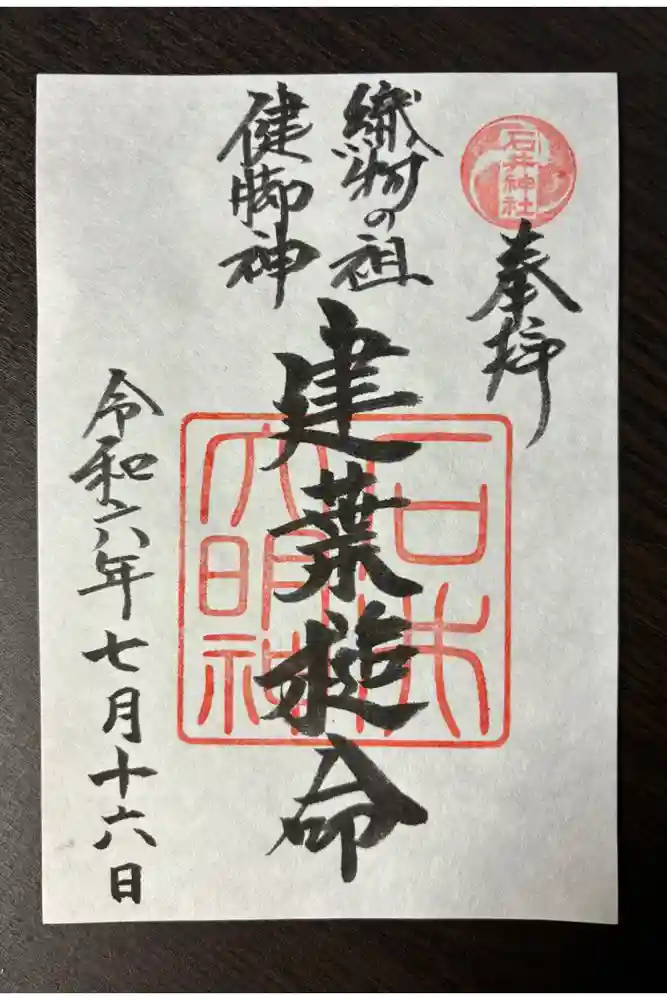 石井神社
奉拝
織物の祖
健脚神
建葉槌命
石井大明神
令和六年七月十六日